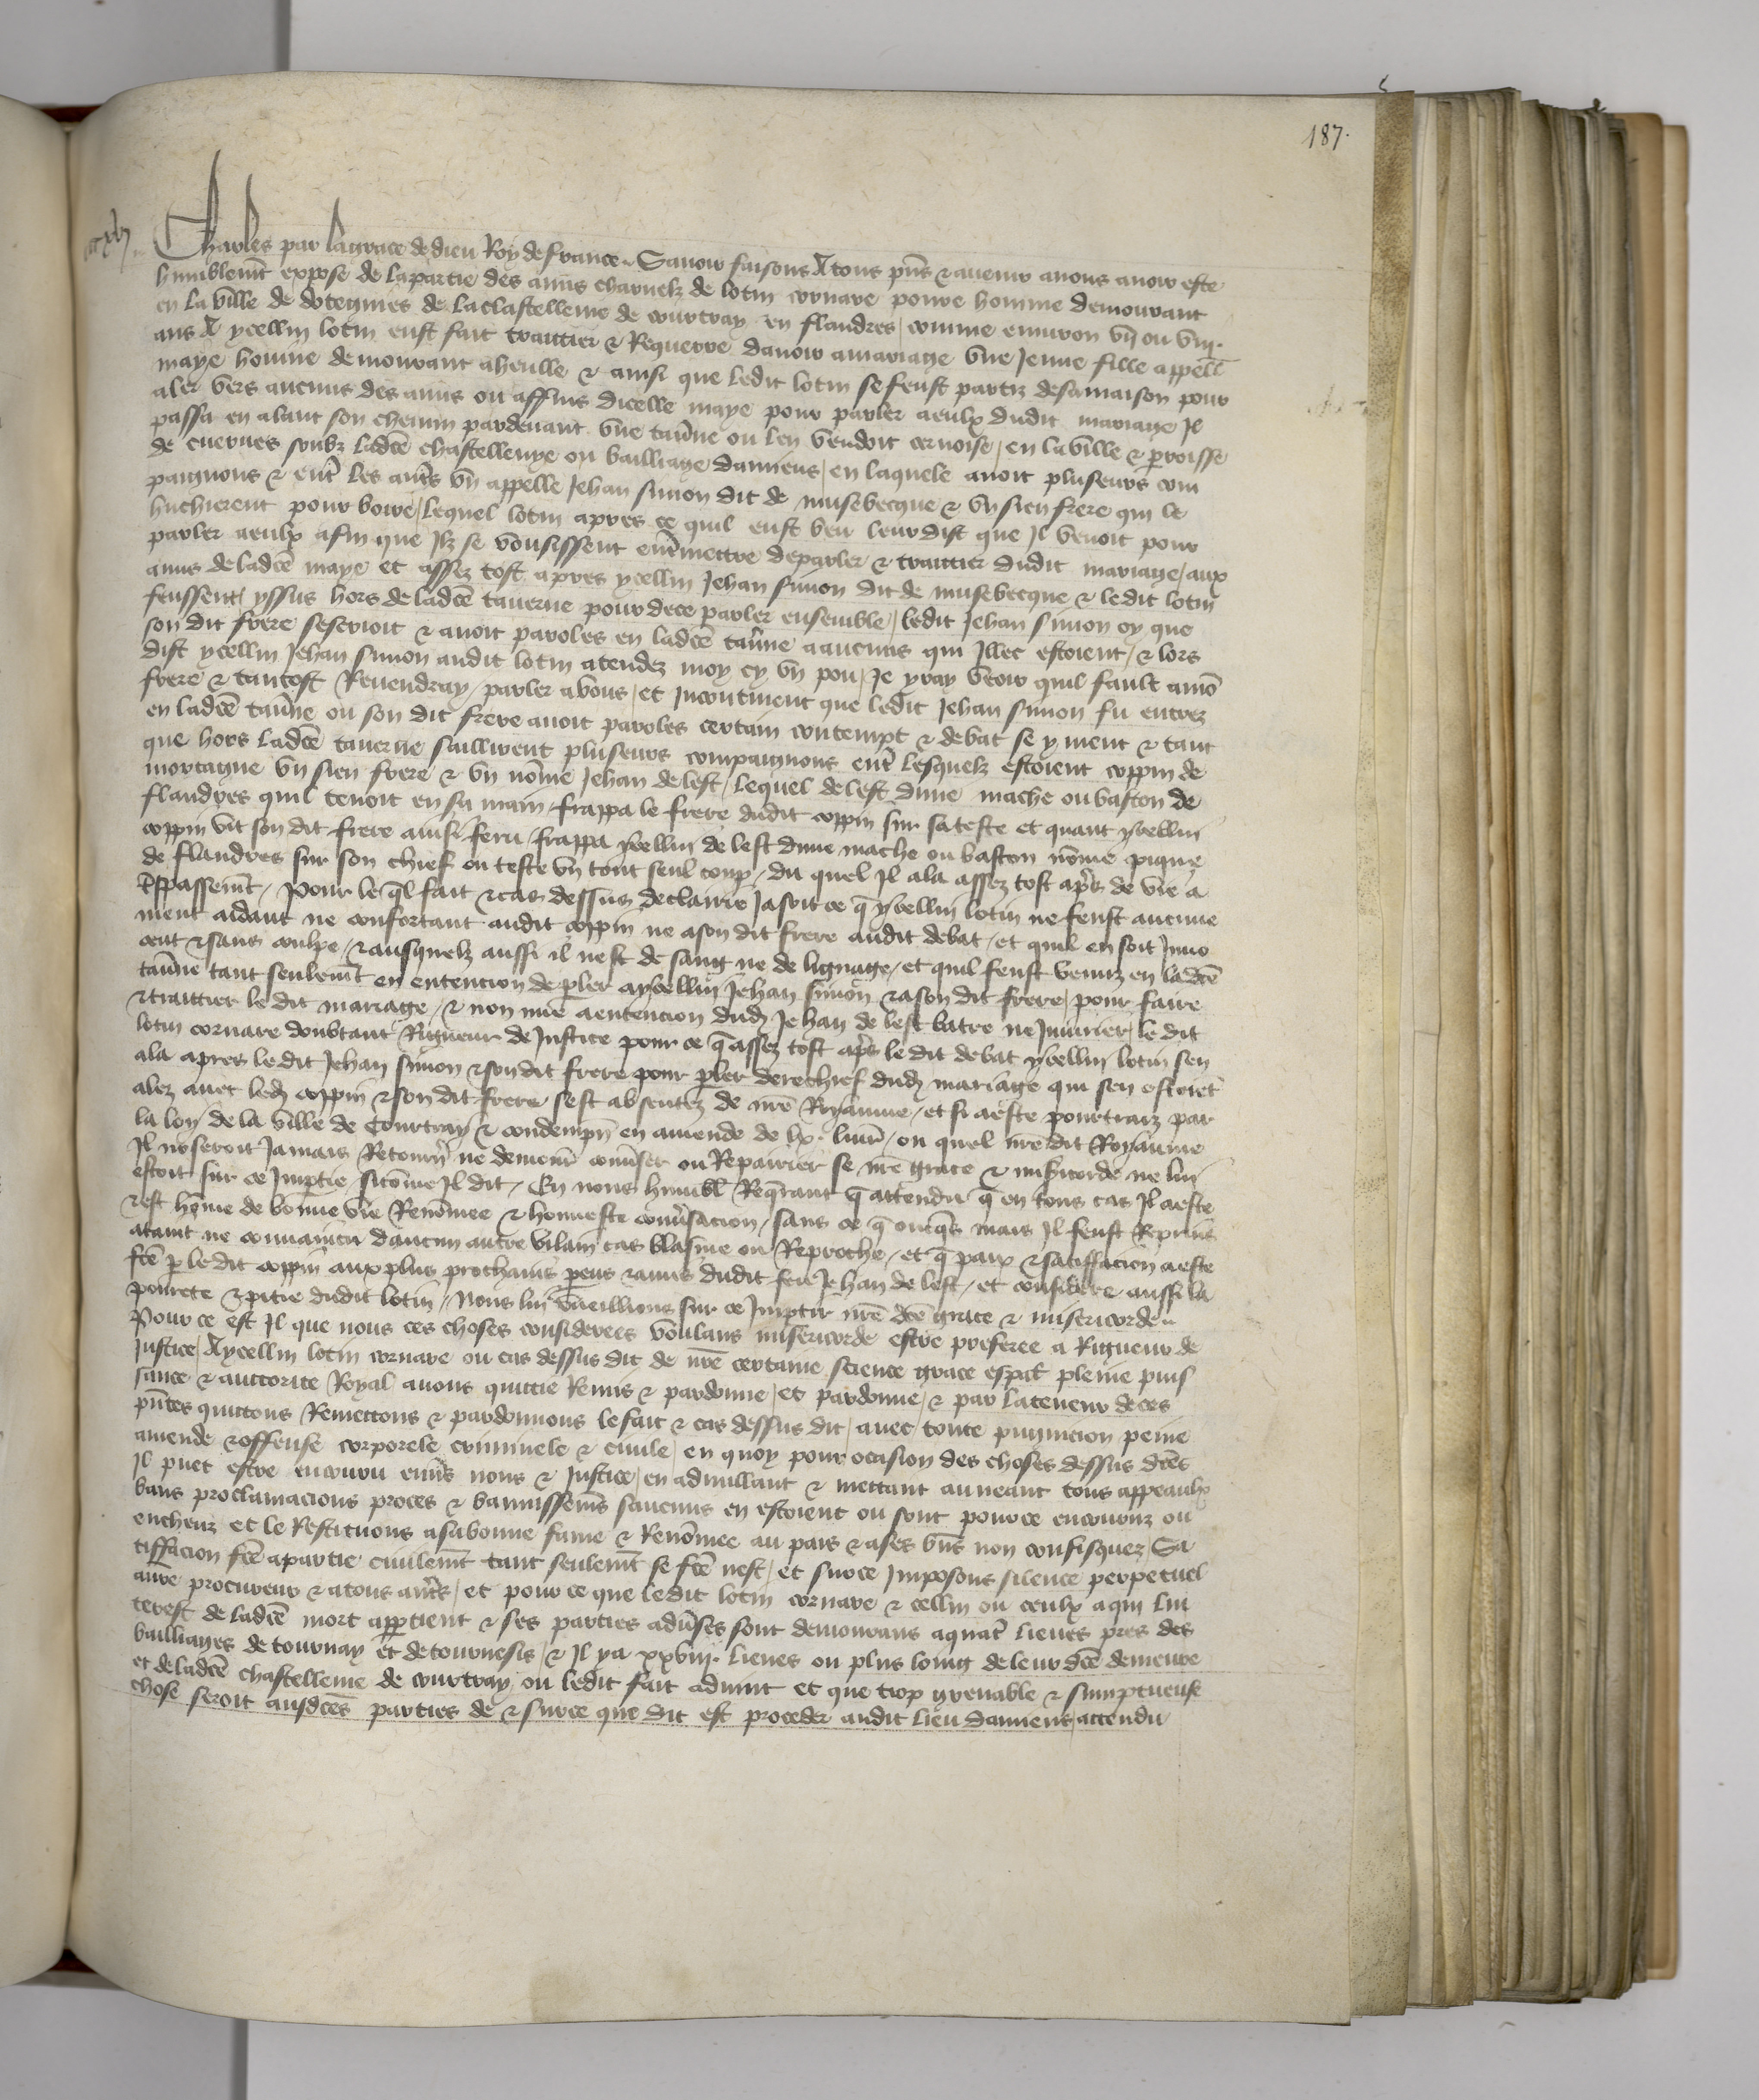 187.
Charles par la grace de dieu Roy de france. Savoir faisons A tous pñs & avenir a nous avoir este
humblemt expose de la partie des amis charnelz de lotin cornare povre homme demourant
en la ville de dotegnies de la chastellenie de courtray en flandres, comme environ vij ou viij.
ans A ycellui lotin eust fait traittier & Requerre davoir a mariage une Jeune fille appellee
maye homme demourant a heulle & ainsi que ledit lotin se feust partiz de sa maison pour
aler vers aucuns des amis ou affins dicelle maye pour parler a eulx dudit mariage Il
passa en alant son chemin pardevant une tav̄ne ou len vendoit cervoise, en la ville & p̄roisse
de cuernes soubz ladc̄e chastellenye ou bailliage damiens, en laquele avoit pluseurs com
paignons & ent̄ les aut̄s un appelle Jehan simon dit de musebecque & un sien frere qui le
huchierent pour boire, lequel lotin apres ce quil eust beu leur dist que Il venoit pour
parler a eulx afin que Ilz se voulsissent ent̄mettre de parler & traittier dudit mariage, aux
amis de ladc̄e maye et assez tost apres ycellui Jehan simon dit de musebecque & ledit lotin
feussent yssus hors de ladc̄e taverne pour de ce parler ensemble, ledit Jehan simon oy que
son dit frere sescrioit & avoit paroles en ladc̄e tav̄ne a aucuns qui Illec estoient, & lors
dist ycellui Jehan simon audit lotin atendez moy cy un pou, Je yray veoir quil fault a mō
frere & tantost Revendray parler a vous, et Incontinent que ledit Jehan simon fu entrez
en ladc̄e tav̄ne ou son dit frere avoit paroles certain contempt & debat se y ment & tant
que hors ladc̄e taverne saillirent pluseurs compaignons ent̄ lesquelz estoient coppin de
mortagne un sien frere & un nōme Jehan de lest, lequel de lest dune mache ou baston de
flandres quil tenoit en sa main frappa le frere dudit coppin sur sa teste et quant ycellui
coppin vit son dit frere ainsi feru frappa ycellui de lest dune mache ou baston nōme pique
de flandres sur son chief ou teste un tout seul coup, du quel Il ala assez tost ap̄s de vie a
t̄spassemt, Pour le q̄l fait & cas dessus declairie Ja soit ce q̄ ycellui lotin ne feust aucune
ment aidant ne confortant audit coppin ne a son dit frere audit debat, et quil en soit Inno
cent & sans coulpe, & ausquelz aussi il nest de sang ne de lignage, et quil feust venuz en ladc̄e
tav̄ne tant seulemt en entencion de p̄ler a ycellui Jehan simon & a son dit frere, pour faire
& traittier le dit mariage, & non mie a entencion dud Jehan de lest batre ne Iniurier, le dit
lotin cornare doubtant Rigueur de Justice pour ce q̄ assez tost ap̄s le dit debat ycellui lotin sen
ala apres le dit Jehan simon & son dit frere pour p̄ler derechief dud mariage qui sen estoiēt
alez avec led coppin & son dit frere sest absentez de nr̄e Royaume, et si a este pourtraiz par
la loy de la ville de Courtray & condempn̄ en amende de lx. livr̄, ou quel nr̄e dit Royaume
Il noseroit Jamais Retourn̄ ne demour̄ conv̄ser ou Repairier se nr̄e grace & mis̄icorde ne lui
estoit sur ce Imp̄tie, sicōme Il dit, En nous humblt Req̄rant q̄ attendu q̄ en tous cas Il a este
& est hōme de bonne vie Renōmee & honneste conv̄sacion, sans ce q̄ oncq̄s mais Il feust Reprins
ataint ne convaincu daucun autre vilain cas blasme ou Reproche, et q̄ paix & satiffacion a este
fc̄e p̄ le dit coppin aux plus prochains parens & amis dudit feu Jehan de lest, et considere aussi la
povrete & pitie dudit lotin, Nous lui vueillions sur ce Imp̄tir nr̄e dc̄e grace & misericorde.
Pour ce est Il que nous ces choses considerees voulans misericorde estre preferee a Rigueur de
Justice, A ycellui lotin cornare ou cas dessus dit de nr̄e certaine science grace esp̄al pleine puis
sance & auctorite Royal avons quittie Remis & pardonne, et pardonne, & par la teneur de ces
pn̄tes quittons Remettons & pardonnons le fait & cas dessus dit, avec toute pugnicion peine
amende & offense corporele criminele & civile, en quoy pour ocasion des choses dessus dc̄es
Il puet estre encouru env̄s nous & Justice, en adnullant & mettant au neant tous appeaulx
bans proclamacions proces & bannissemens saucuns en estoient ou sont pour ce encouruz ou
encheuz et le Restituons a sa bonne fame & Renōmee au pais & a ses b̄ns non confisquez, Sa
tiffacion fc̄e a partie civilemt tant seulemt se fc̄e nest, et sur ce Imposons silence perpetuel
a nr̄e procureur & a tous aut̄s, et pour ce que ledit lotin cornare & cellui ou ceulx a qui lin
terest de ladc̄e mort app̄tient & ses parties adv̄ses sont demourans a quat̄ lieues pres des
bailliages de tournay et de tournesis, & Il y a xxviij. lieues ou plus loing de leur dc̄e demeure
et de ladc̄e chastellenie de courtray ou ledit fait advint et que trop grevable & sumptueuse
chose seroit ausdc̄es parties de & sur ce que dit est proceder audit lieu damiens, attendu